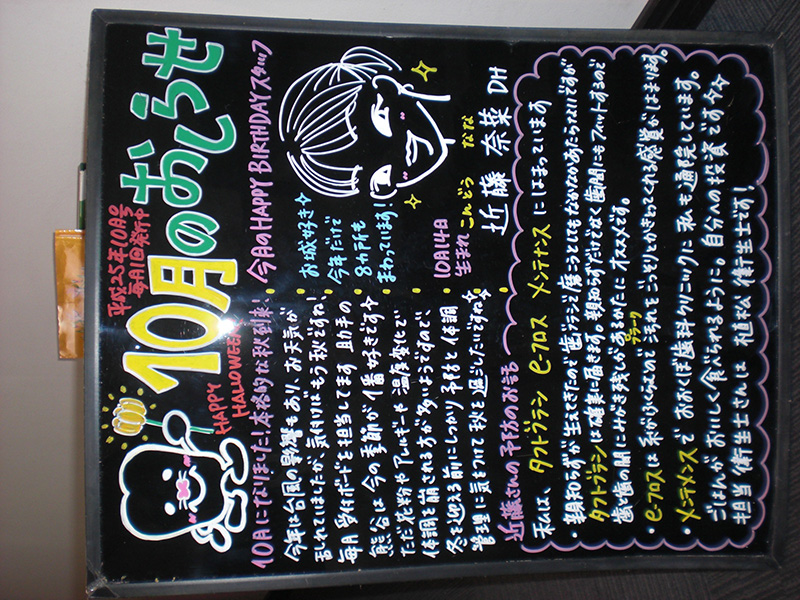 平成25年10月号
毎月1回発行中
10月のおしらせ
HAPPY
HALLOWEEN
10月になりました！本格的な秋到来！
今年は台風の影響もあり、お天気が
乱れていましたが、気付けばもう秋ですね！
毎月受付ボードを担当してます 助手の
熊谷は今の季節が1番好きです
ただ花粉やアレルギーや温度変化で
体調を崩される方が多いようですので、
冬を迎える前にしっかり予防と体調
管理に気をつけて秋を過ごしたいですね
今月のHAPPY BIRTHDAYスタッフ
お城好き
今年だけで
8カ所も
まわっています！
10月14日
生まれ
こんどう なな
近藤 奈菜 DH
近藤さんの予防のお話
私は、タフトブラシ e-フロス メンテナンス にはまっています
・親知らずが生えてきたので歯ブラシで磨こうとしてもなかなかあたらないですが
タフトブラシは確実に届きます。親知らずだけでなく歯間にもフィットするので
歯と歯の間にみがき残しがあるかたに オススメです。
プラーク
・e-フロスは糸がふくらむので汚れをごっそりとかきとってくれる感覚がはまります。
・メンテナンスで おおくぼ歯科クリニックに 私も通院しています。
ごはんがおいしく食べられるように。自分への投資です
担当衛生士さんは 植松 衛生士です！